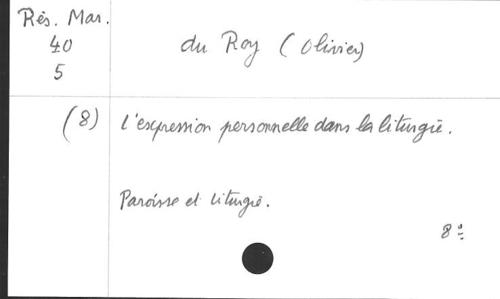 Rés. Mar.
40
5
du Roy (Olivier)
(8) L'expression personnelle dans la liturgie.
Paroisse et liturgie.
8º